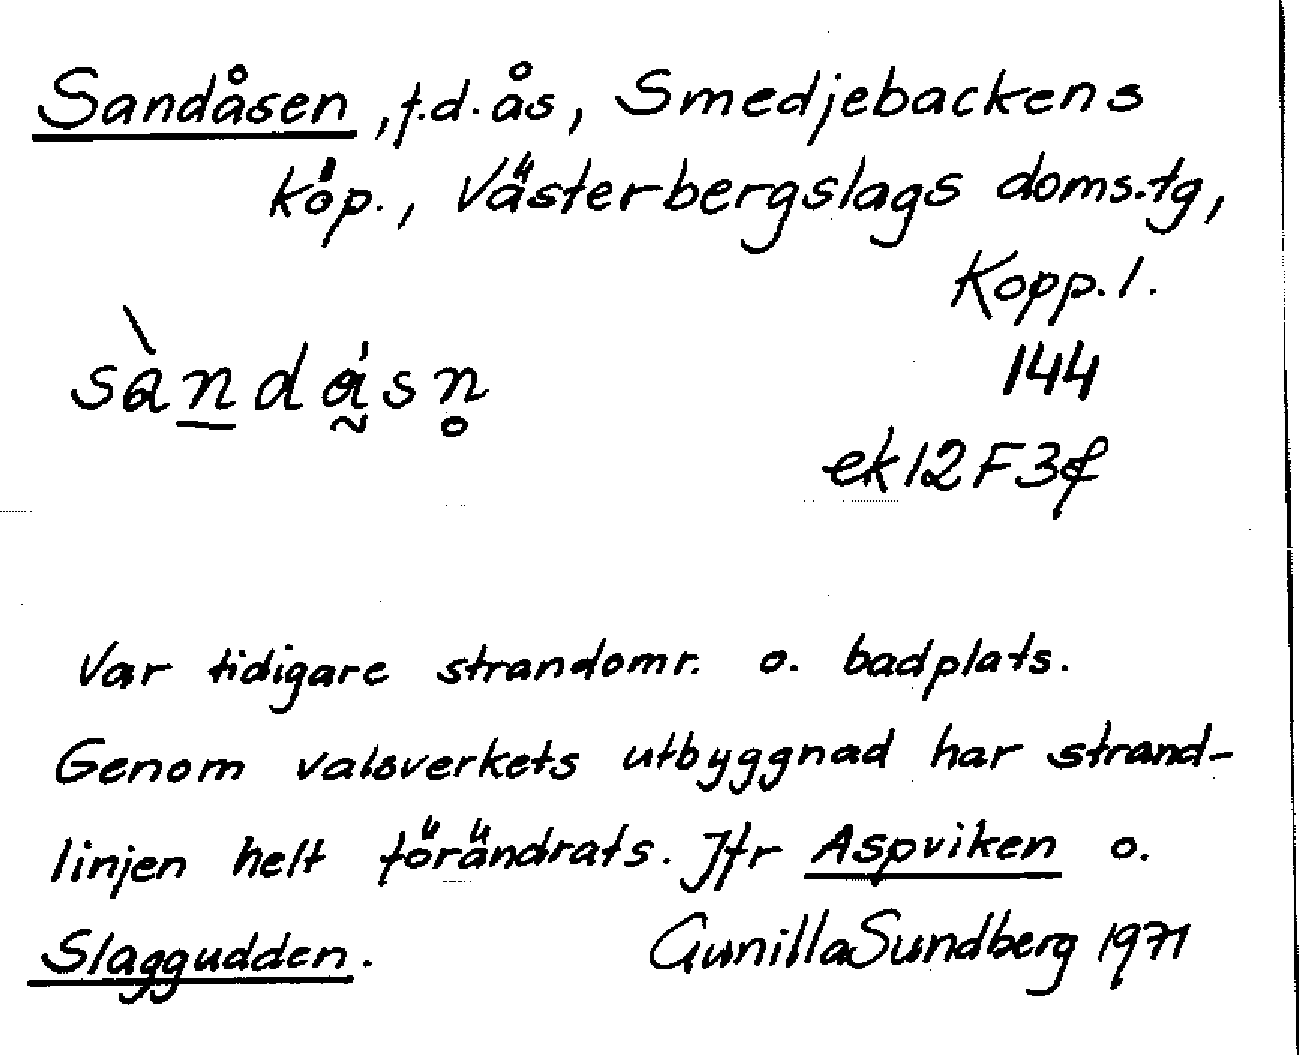 Sandåsen, f.d. ås, Smedjebackens
köp., Västerbergslags doms.tg,
Kopp. l.
sàndåsn
144
ek 12 F 3 f
Var tidigare strandomr. o. badplats.
Genom valsverkets utbyggnad har strand-
linjen helt förändrats. Jfr Aspviken o.
Slaggudden.
Gunilla Sundberg 1971